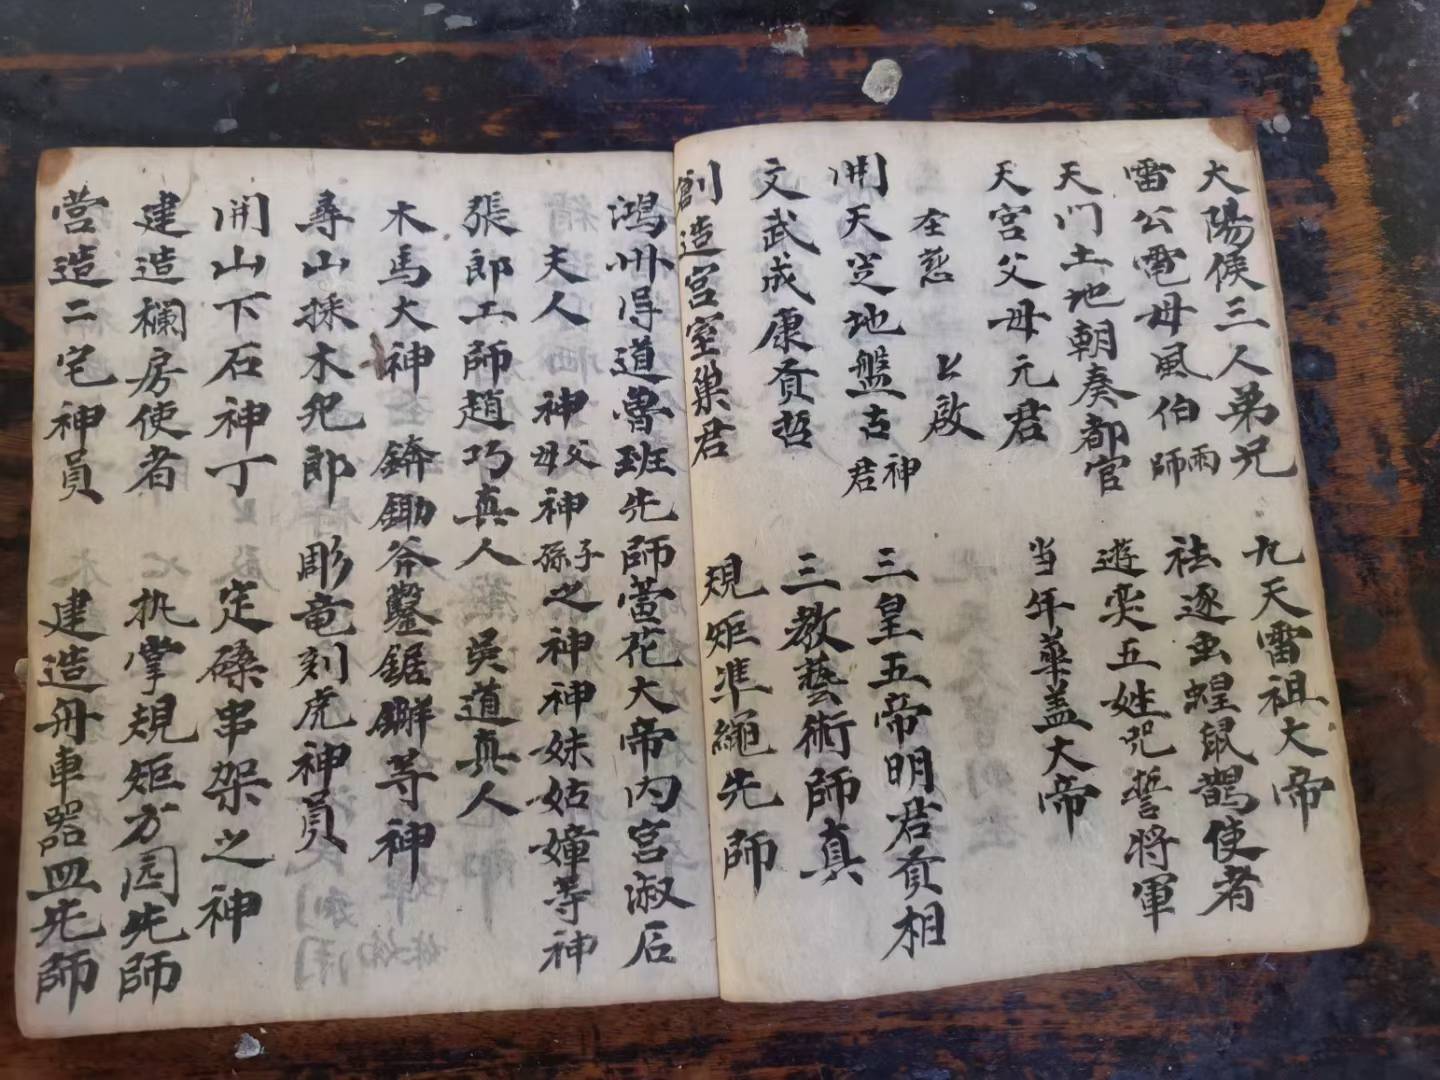 大陽候三人弟兄　九天雷祖大帝
雷公電母風伯雨師　祛逐虫蝗鼠鵲使者
天门土地朝奏都官　遊奕五姓咒誓將軍
天宮父母元君　当年華盖大帝
在懇　上啟
開天立地盤古神君　三皇五帝明君贡相
文武成康贡哲　三教藝術師真
創造宮室巢君　規矩準繩先師
鴻州得道魯班先師　蓄花大帝内宫淑后
夫人　神父神母　子孫之神　神妹姑嫜等神
張郎工師趙巧真人　吳道真人
木馬大神　錛鋤斧鑿鋸鐁等神
尋山採木児郎　彫竜刻虎神員
開山下石神丁　定磉串架之神
建造欄房使者　七执掌規矩方园先師
营造二宅神員　建造舟車器皿先師